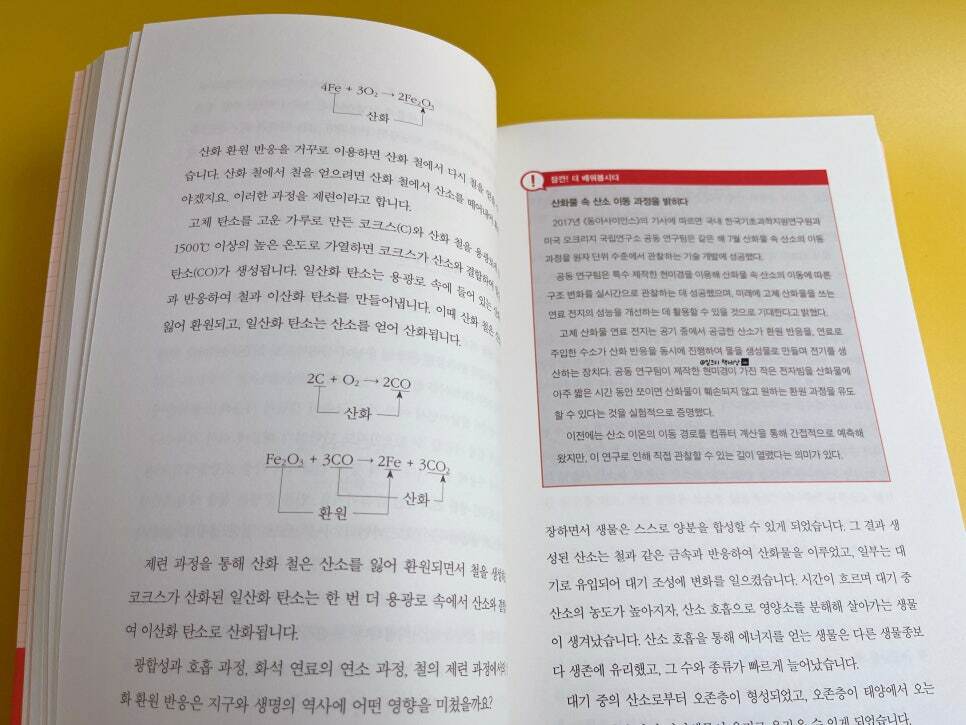 4Fe + 3O₂ → 2Fe₂O₃
산화
산화 환원 반응을 거꾸로 이용하면 산화 철에서 다시 철을 얻을
습니다. 산화 철에서 철을 얻으려면 산화 철에서 산소를 떼어내야
야겠지요. 이러한 과정을 제련이라고 합니다.
고체 탄소를 고운 가루로 만든 코크스(C)와 산화 철을 용광로에
1500℃ 이상의 높은 온도로 가열하면 코크스가 산소와 결합하여
탄소(CO)가 생성됩니다. 일산화 탄소는 용광로 속에 들어 있는
과 반응하여 철과 이산화 탄소를 만들어냅니다. 이때 산화 철은
잃어 환원되고, 일산화 탄소는 산소를 얻어 산화됩니다.
2C + O₂ → 2CO
산화
Fe₂O₃ + 3CO → 2Fe + 3CO₂
산화
환원
제련 과정을 통해 산화 철은 산소를 잃어 환원되면서 철을 생성
코크스가 산화된 일산화 탄소는 한 번 더 용광로 속에서 산소와 결
여 이산화 탄소로 산화됩니다.
광합성과 호흡 과정, 화석 연료의 연소 과정, 철의 제련 과정에서
화 환원 반응은 지구와 생명의 역사에 어떤 영향을 미쳤을까요?
! 잠깐! 더 배워봅시다
산화물 속 산소 이동 과정을 밝히다
2017년 《동아사이언스》의 기사에 따르면 국내 한국기초과학지원연구원과
미국 오크리지 국립연구소 공동 연구팀은 같은 해 7월 산화물 속 산소의 이동
과정을 원자 단위 수준에서 관찰하는 기술 개발에 성공했다.
공동 연구팀은 특수 제작한 현미경을 이용해 산화물 속 산소의 이동에 따른
구조 변화를 실시간으로 관찰하는 데 성공했으며, 미래에 고체 산화물을 쓰는
연료 전지의 성능을 개선하는 데 활용할 수 있을 것으로 기대한다고 밝혔다.
고체 산화물 연료 전지는 공기 중에서 공급한 산소가 환원 반응을, 연료로
주입한 수소가 산화 반응을 동시에 진행하며 물을 생성물로 만들며 전기를 생
산하는 장치다. 공동 연구팀이 제작한 현미경이 가진 작은 전자빔을 산화물에
아주 짧은 시간 동안 쪼이면 산화물이 훼손되지 않고 원하는 환원 과정을 유도
할 수 있다는 것을 실험적으로 증명했다.
이전에는 산소 이온의 이동 경로를 컴퓨터 계산을 통해 간접적으로 예측해
왔지만, 이 연구로 인해 직접 관찰할 수 있는 길이 열렸다는 의미가 있다.
장하면서 생물은 스스로 양분을 합성할 수 있게 되었습니다. 그 결과 생
성된 산소는 철과 같은 금속과 반응하여 산화물을 이루었고, 일부는 대
기로 유입되어 대기 조성에 변화를 일으켰습니다. 시간이 흐르며 대기 중
산소의 농도가 높아지자, 산소 호흡으로 영양소를 분해해 살아가는 생물
이 생겨났습니다. 산소 호흡을 통해 에너지를 얻는 생물은 다른 생물종보
다 생존에 유리했고, 그 수와 종류가 빠르게 늘어났습니다.
대기 중의 산소로부터 오존층이 형성되었고, 오존층이 태양에서 오는